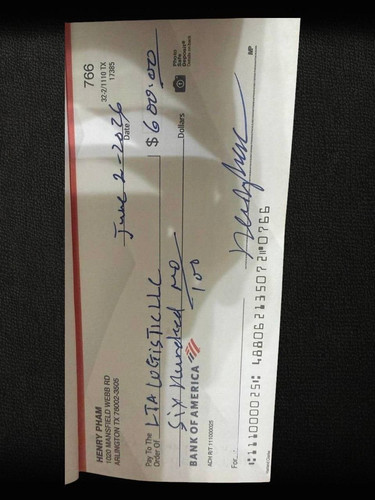 HENRY PHAM
1020 MANSFIELD WEBB RD
ARLINGTON TX 76002-3505
766
32-2/1110 TX
17385
June 2-2026
Date
Pay To The
Order Of
LTA LOGISTIC LLC
$ 600.00
Six Hundred no/100
Dollars
Photo
Safe
Deposit®
Details on back
BANK OF AMERICA
ACH R/T 111000025
For
MP
⑆111000025⑆ 488062135072⑈0766